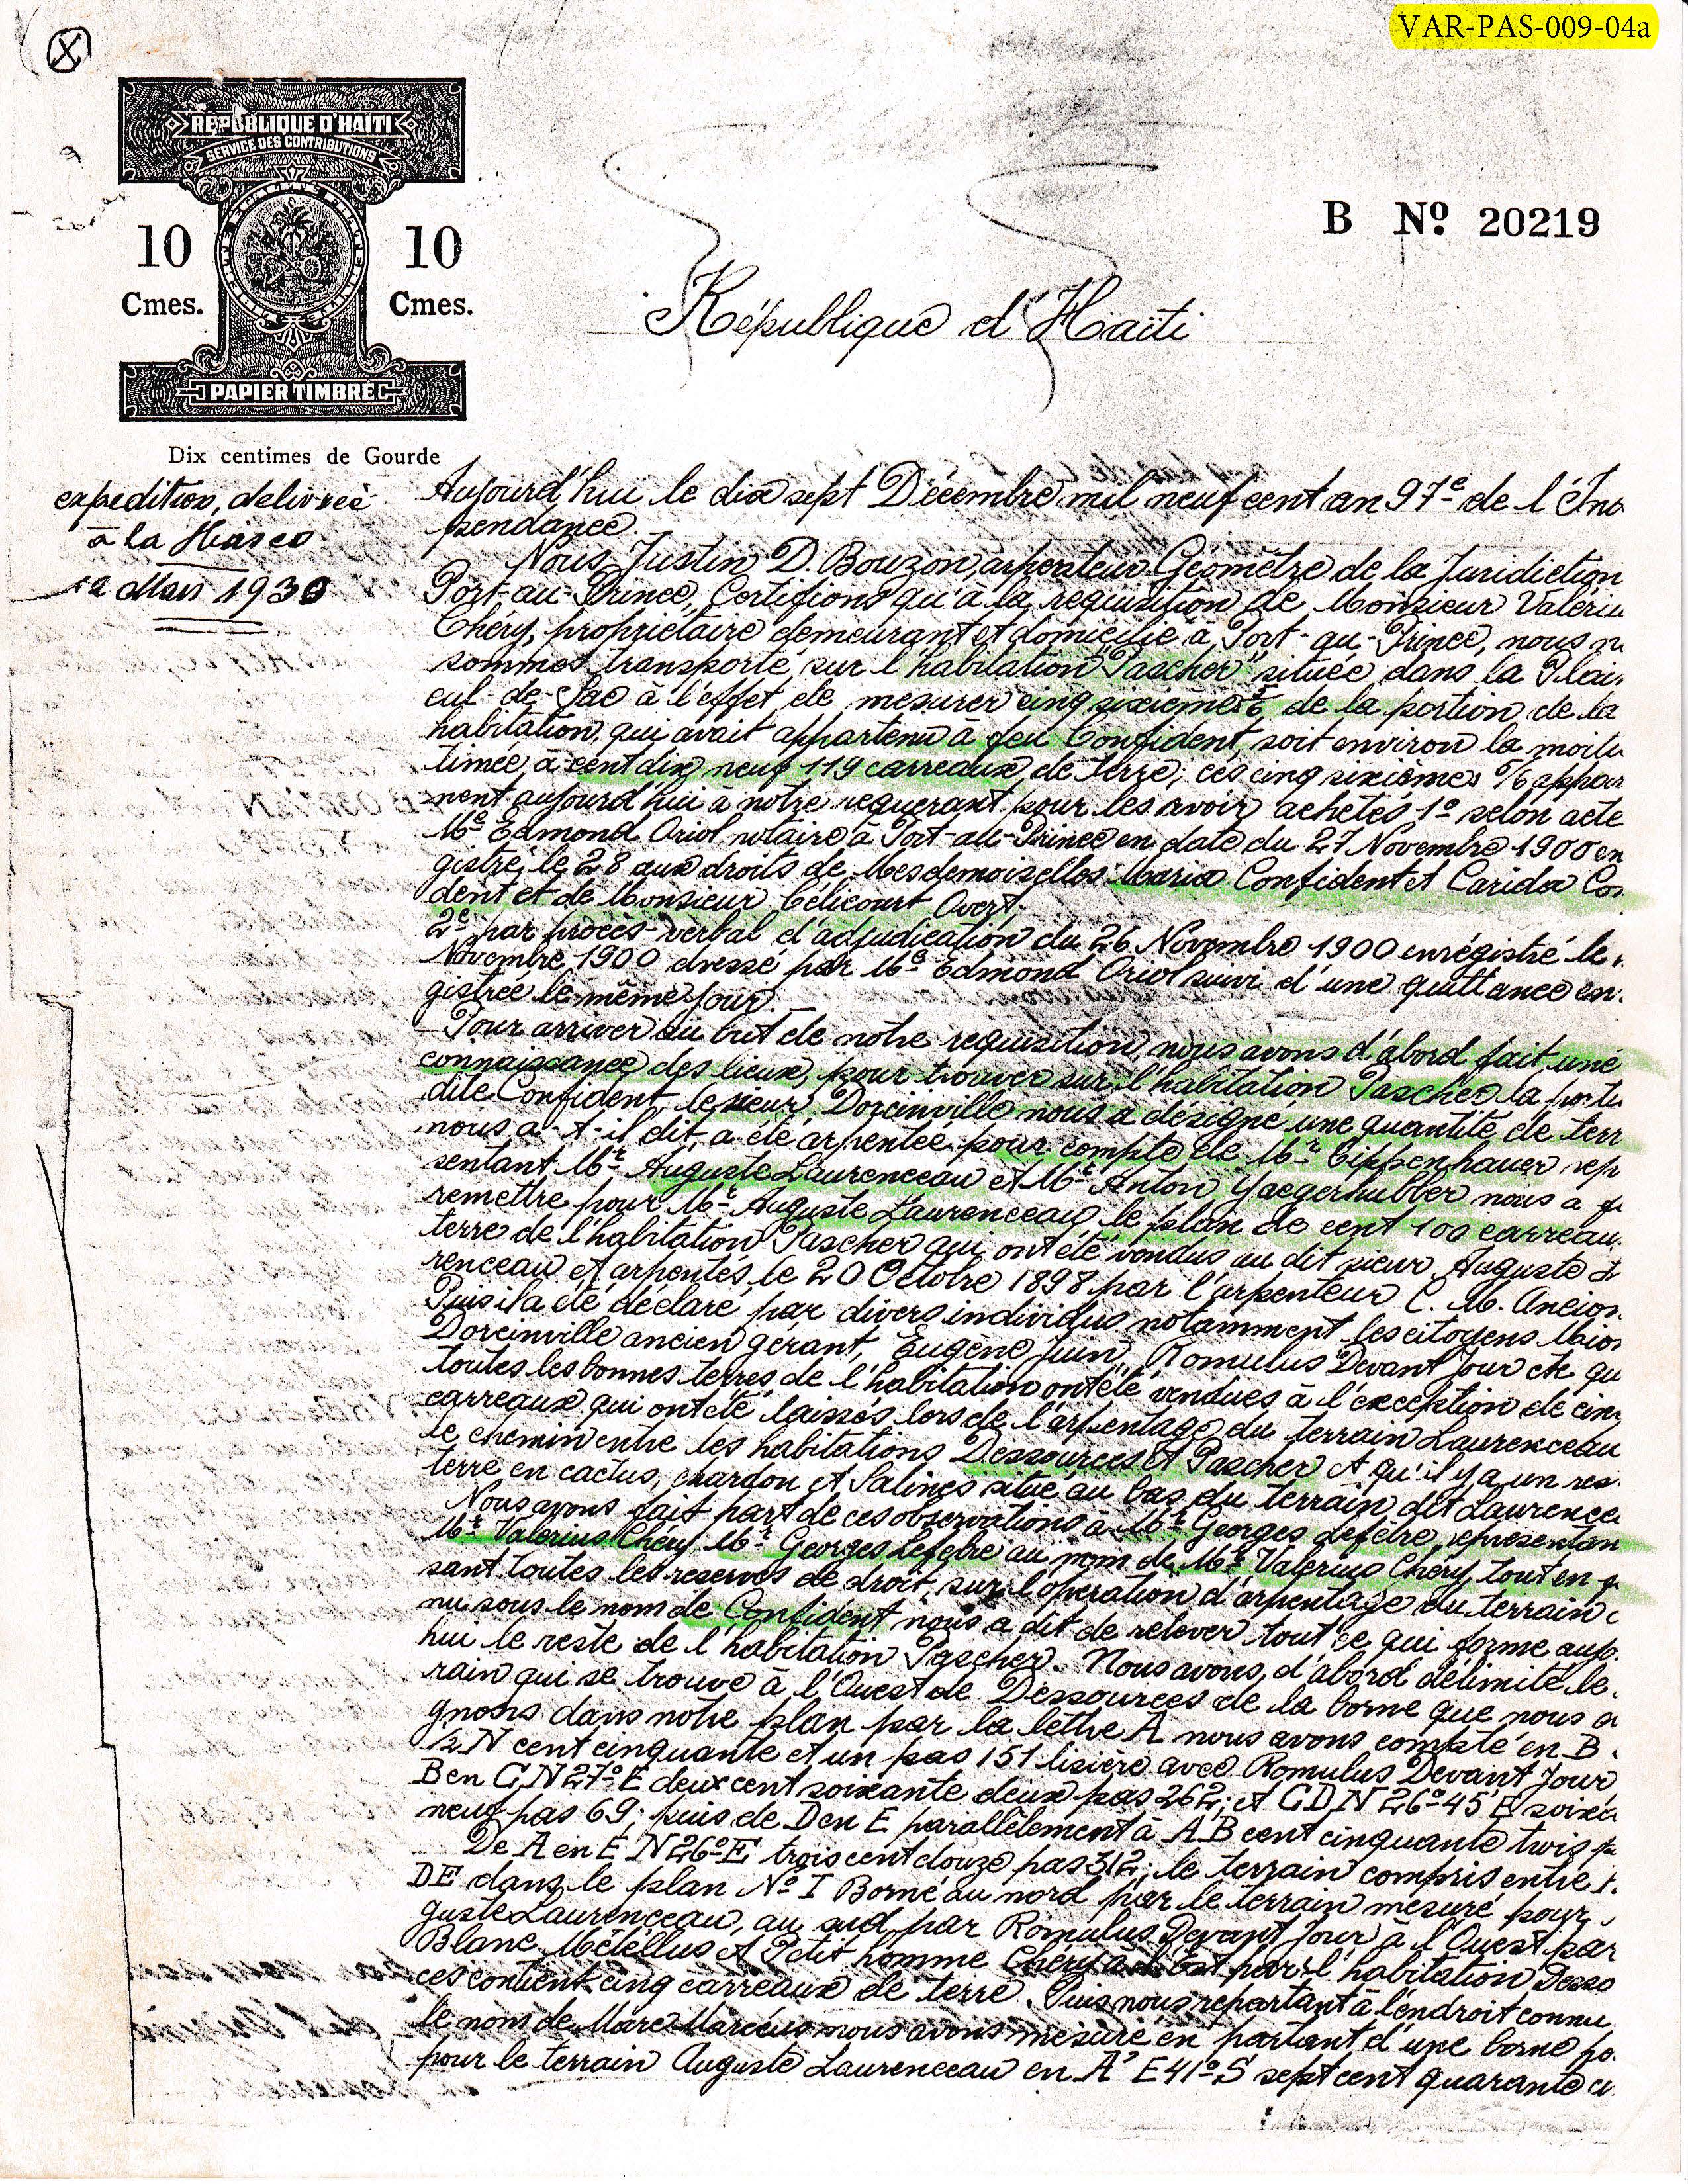 VAR-PAS-009-04a
RÉPUBLIQUE D'HAÏTI
SERVICE DES CONTRIBUTIONS
10 10
Cmes. Cmes.
PAPIER TIMBRÉ
Dix centimes de Gourde
B Nº 20219
République d'Haïti
expedition, delivrée
à la Hasco
12 Mars 1930
Aujourd'hui le dix sept Décembre mil neuf cent an 97e de l'Ind
pendance.
Nous Justin D. Bouzon, arpenteur Géomètre de la Juridiction
Port-au-Prince, Certifions qu'à la requisition de Monsieur Valériu
Chéry, propriétaire demeurant et domicilié à Port-au-Prince, nous n
sommes transporté sur l'habitation "Pascher" située dans la Plai
cul-de-Sac à l'effet de mesurer cinq sixièmes de la portion de la
habitation, qui avait appartenu à feu Confident, soit environ la moiti
timée à cent dix neuf 119 carreaux de terre; ces cinq sixièmes 5/6 appar
nent aujourd'hui à notre requerant pour les avoir achetés 1º selon acte
Me Edmond Oriol notaire à Port-au-Prince en date du 27 Novembre 1900 en
gistré le 28 aux droits de Mesdemoiselles Maria Confident et Carida Co
dent et de Monsieur Célicourt Overt,
2º par procès-verbal d'adjudication du 26 Novembre 1900 enrégistré le
Novembre 1900 dressé par Me Edmond Oriol suivi d'une quittance en
gistrée le même jour.
Pour arriver au but de notre requisition, nous avons d'abord fait une
connaissance des lieux, pour trouver sur l'habitation Pascher la porti
dite Confident, le sieur Dorcinville nous a designé une quantité de terr
nous a-t-il dit, a été arpentée pour compte de Mr Cippenhauer rep
sentant Mr Auguste Laurenceau et Mr Anton Yaegerhubber nous a
remettre pour Mr Auguste Laurenceau le plan de cent 100 carreau
terre de l'habitation Pascher qui ont été vendus au dit sieur Auguste
renceau et arpentés le 20 Octobre 1898 par l'arpenteur C. M. Ancion
Puis il a été déclaré par divers individus notamment les citoyens
Dorcinville ancien gerant, Eugène Juin, Romulus Devant Jour etc qu
toutes les bonnes terres de l'habitation ont été vendues à l'exception de cin
carreaux qui ont été laissés lors de l'arpentage du terrain Laurenceau
le chemin entre les habitations Dessources et Pascher et qu'il y a un res
terre en cactus, chardon et Salines situé au bas du terrain dit Laurence
Nous avons fait part de ces observations à Mr Georges Lefebre, representan
Mr Valerius Chery. Mr Georges Lefebre au nom de Mr Valerius Chery, tout en
sant toutes les reserves de droit, sur l'opération d'arpentage du terrain c
nu sous le nom de Confident nous a dit de relever tout ce qui forme aujo
hui le reste de l'habitation Pascher. Nous avons d'abord délimité le
rain qui se trouve à l'Ouest de Dessources de la borne que nous
gnons dans notre plan par la lettre A nous avons compté en B
1/2 N cent cinquante et un pas 151 lisière avec Romulus Devant Jour
B en C N 27º E deux cent soixante deux pas 262; et C D N 26º 45' E soixa
neuf pas 69; puis de D en E parallèlement à A B cent cinquante trois
De A en E N 26º E trois cent douze pas 312; le terrain compris entre
D E dans le plan Nº I Borné au nord par le terrain mesuré pour
guste Laurenceau, au sud par Romulus Devant Jour à l'Ouest par
Blanc Métellus et Petit homme Chéry à l'Est par l'habitation Desso
ces contient cinq carreaux de terre. Puis nous reportant à l'endroit connu
le nom de Marc Marcéus nous avons mesuré en partant d'une borne po
pour le terrain Auguste Laurenceau en A' E 41º S sept cent quarante